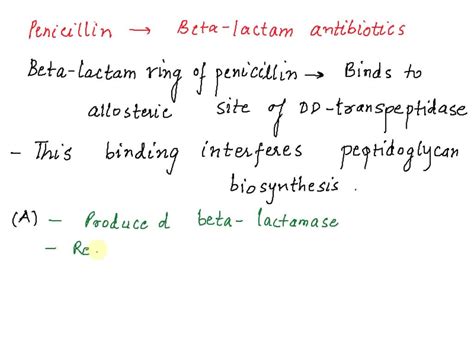 Penicillin → Beta-lactam antibiotics
Beta-lactam ring of penicillin → Binds to
allosteric site of DD-transpeptidase
- This binding interferes peptidoglycan
biosynthesis.
(A) - Produced beta-lactamase
- Re